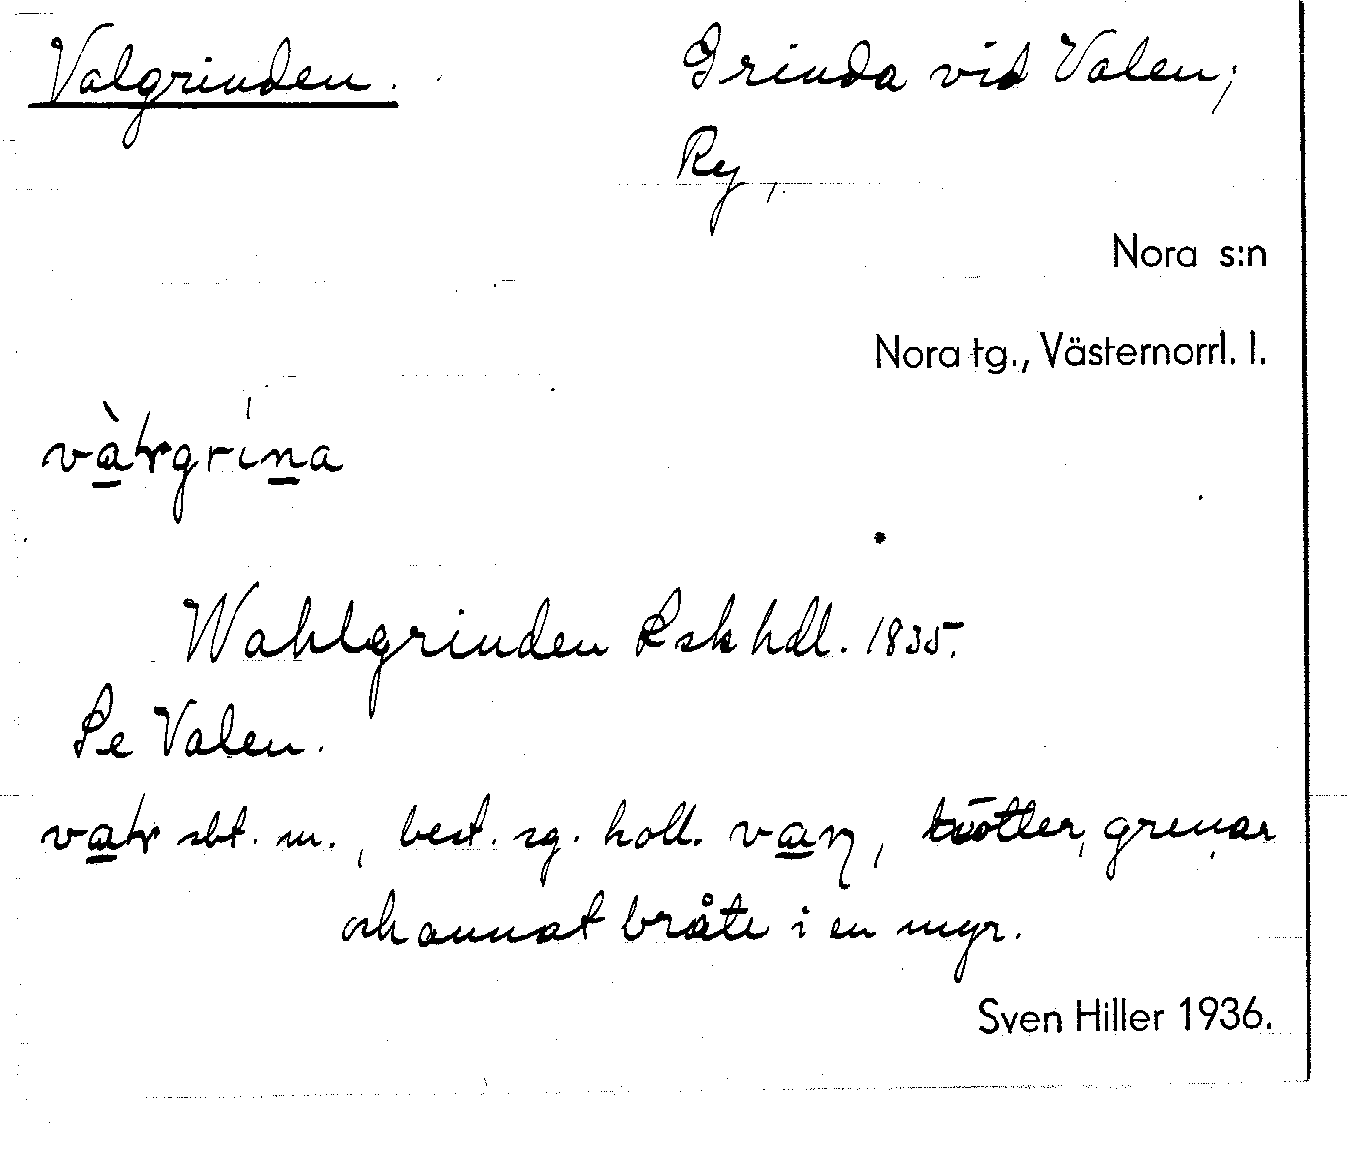 Valgrinden.
Grinda vid Valen,
Ry,
Nora s:n
Nora tg., Västernorrl. l.
Wahlgrinden Lsk hdl. 1835.
Se Valen.
sbt. m., best. sg. koll. grenar
och annat bråte i en myr.
Sven Hiller 1936.